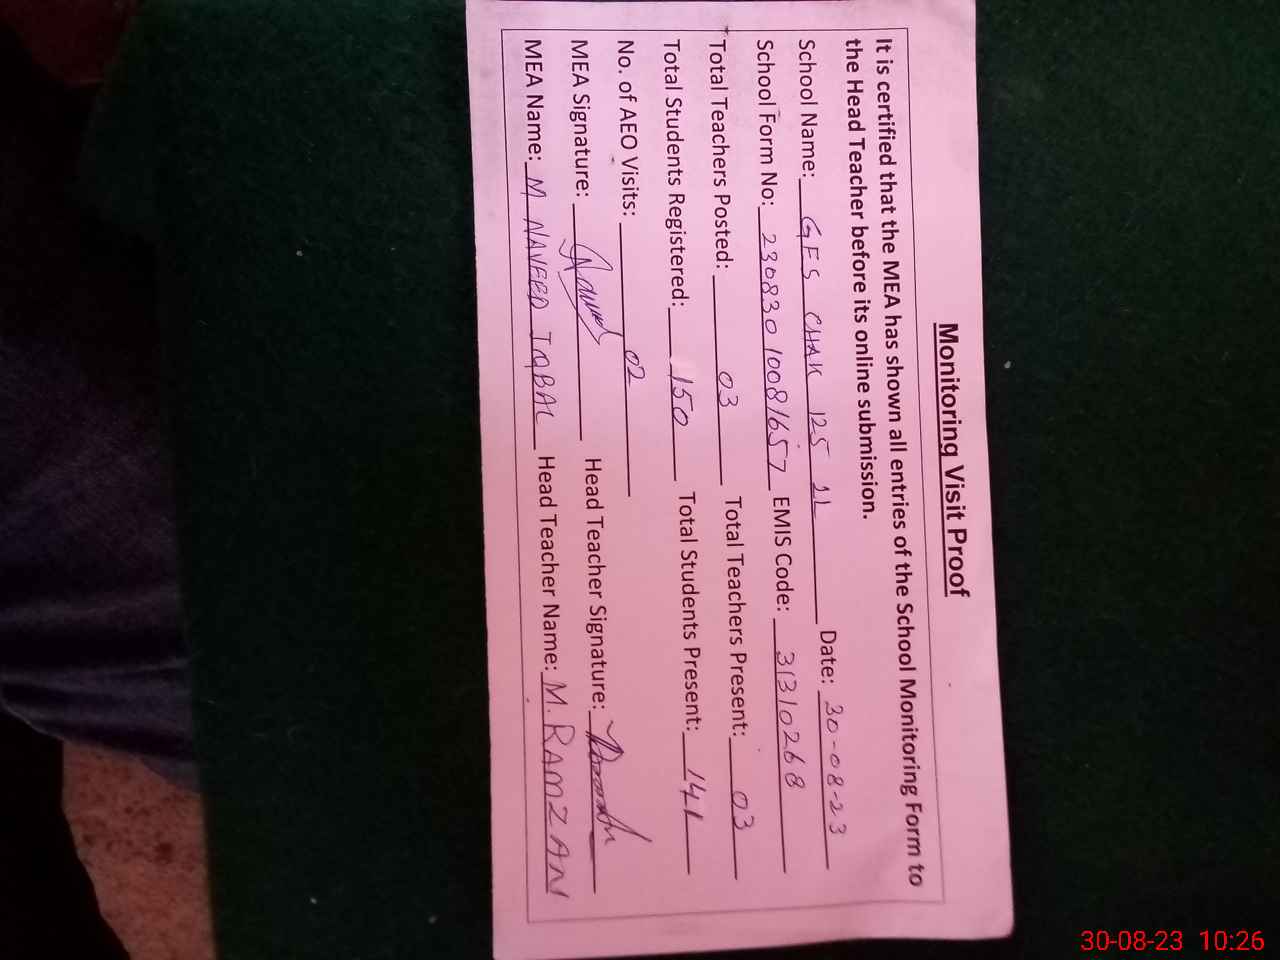 Monitoring Visit Proof
It is certified that the MEA has shown all entries of the School Monitoring Form to
the Head Teacher before its online submission.
School Name: GES CHAK 125 1L Date: 30-08-23
School Form No: 23083010081657 EMIS Code: 31310268
Total Teachers Posted: 03 Total Teachers Present: 03
Total Students Registered: 150 Total Students Present: 141
No. of AEO Visits: 02
MEA Signature: Head Teacher Signature:
MEA Name: M NAVEED IQBAL Head Teacher Name: M. RAMZAN
30-08-23 10:26